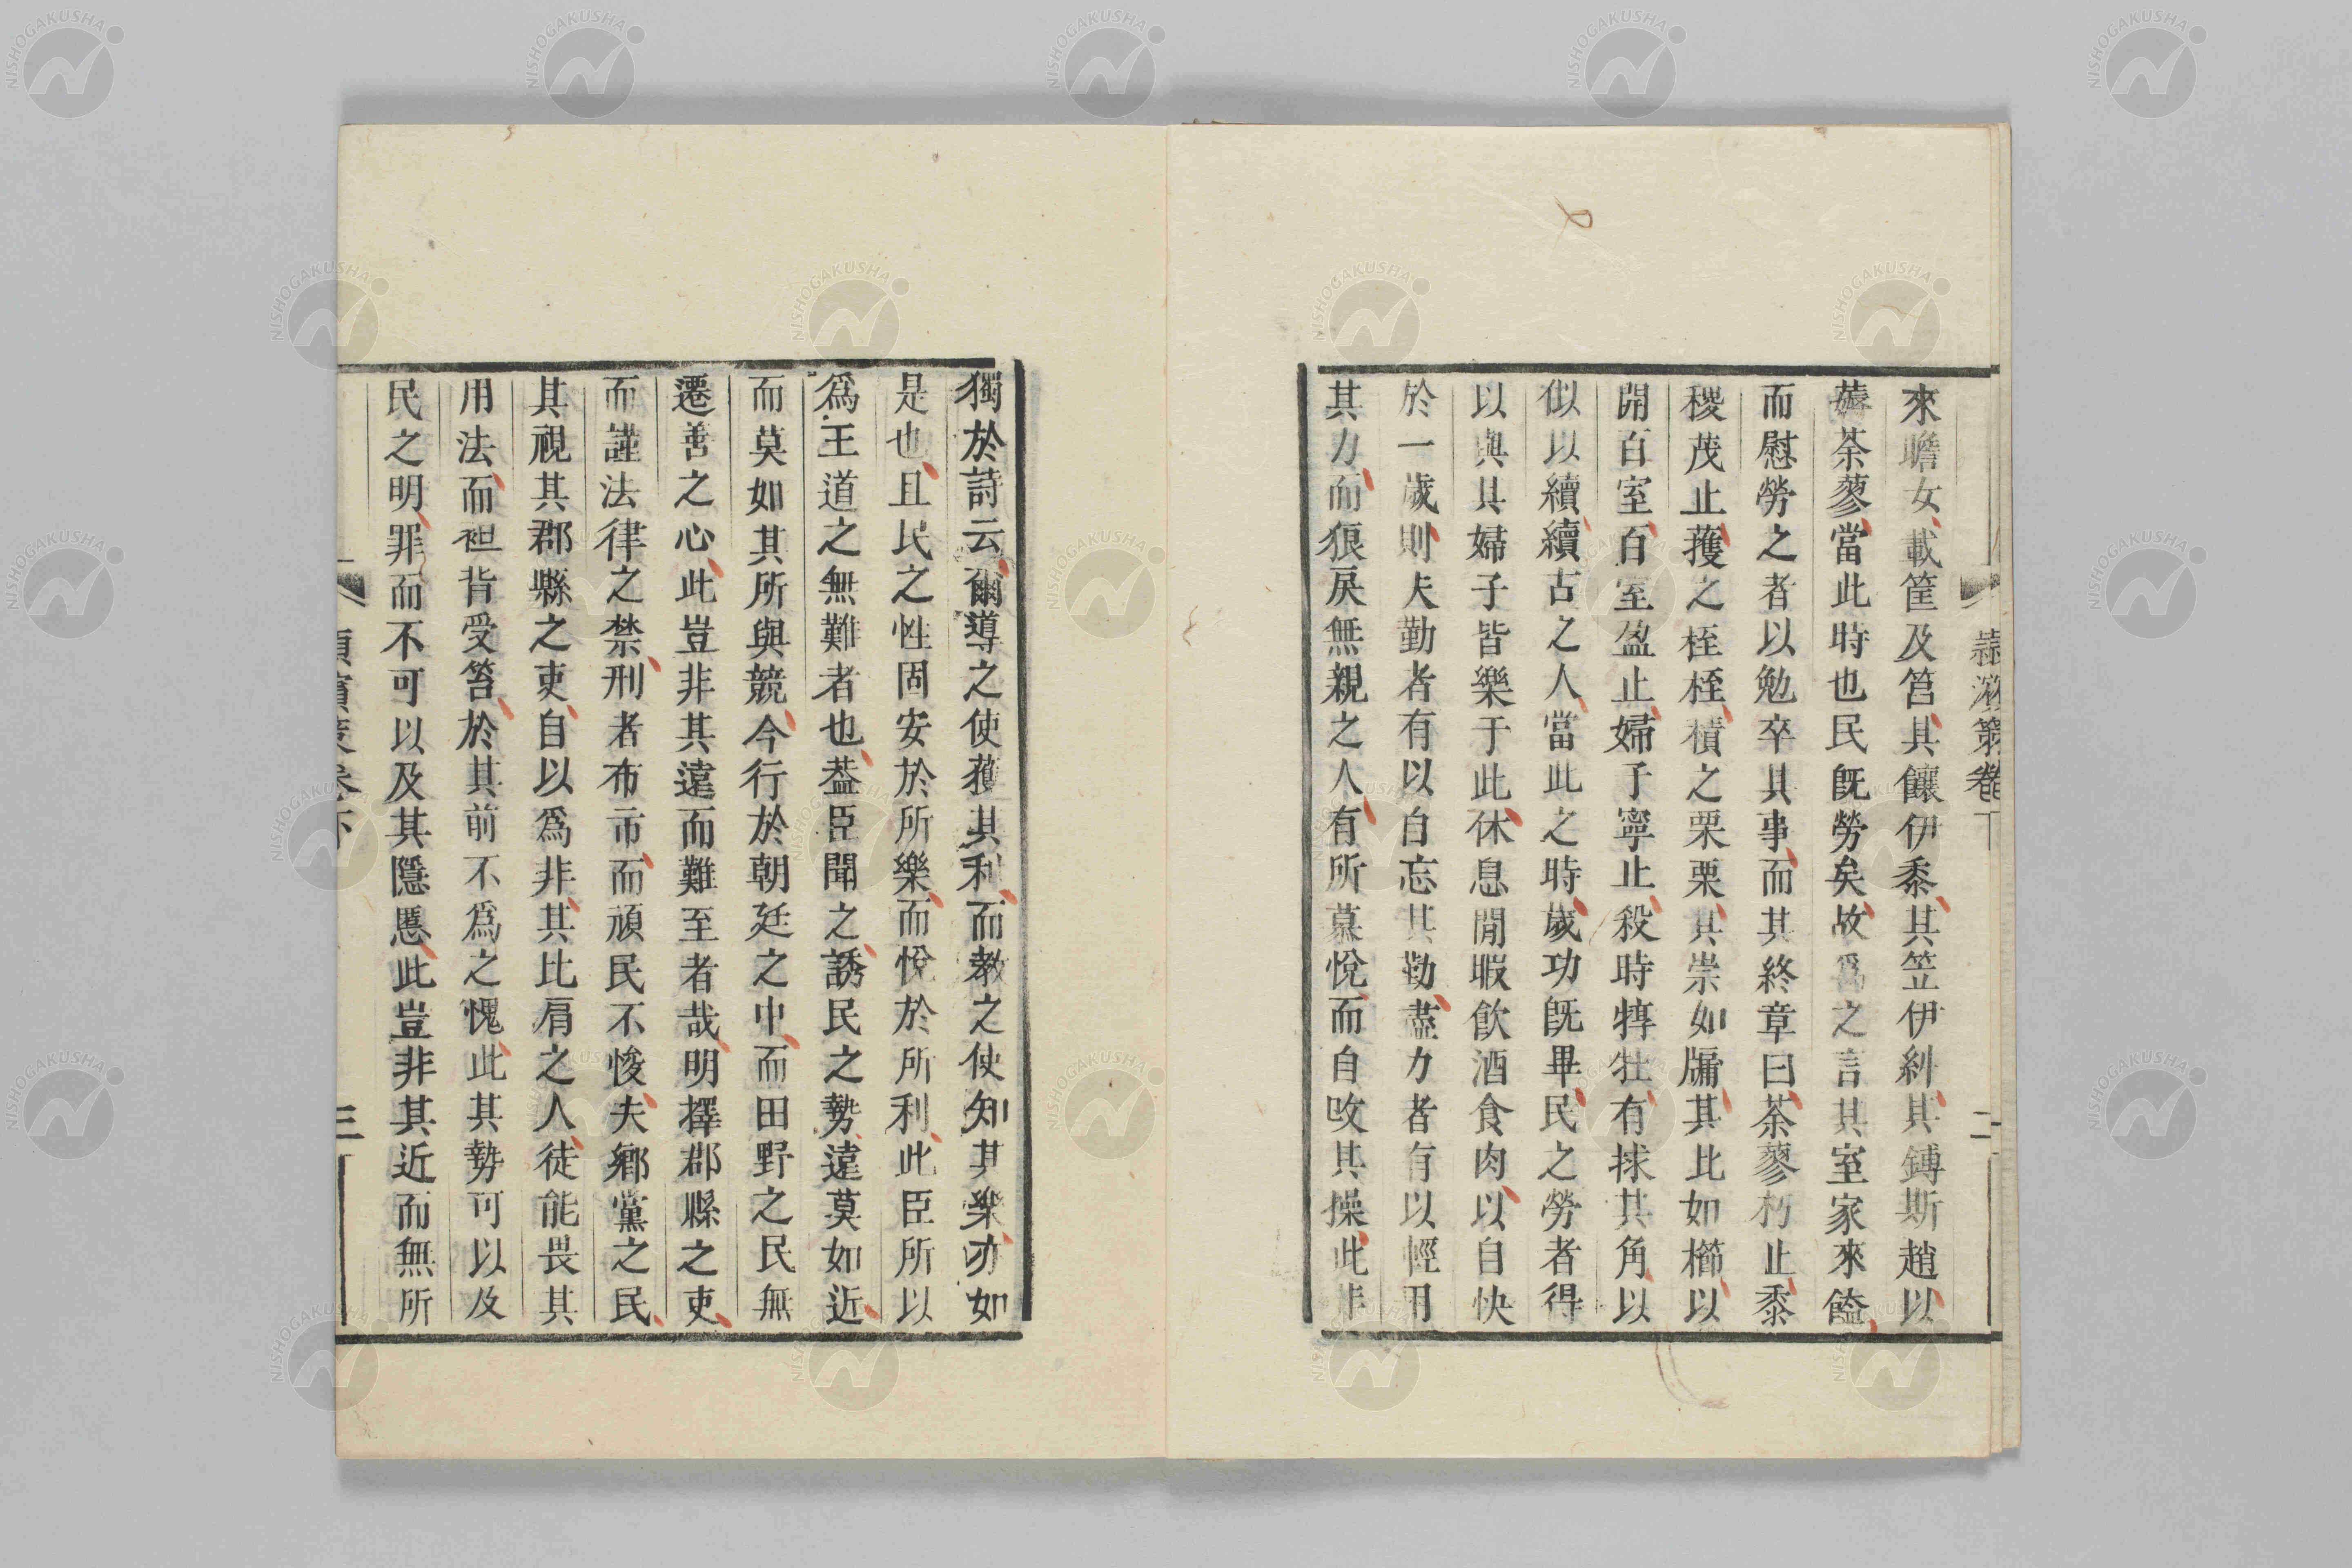 來瞻女載筐及筥其饟伊黍其笠伊糾其鏄斯趙以
薅荼蓼當此時也民旣勞矣故爲之言其室家來饁
而慰勞之者以勉卒其事而其終章曰荼蓼朽止黍
稷茂止穫之桎桎積之栗栗其崇如墉其比如櫛以
開百室百室盈止婦子寧止殺時犉牡有捄其角以
似以續續古之人當此之時歲功旣畢民之勞者得
以與其婦子皆樂于此休息閒暇飲酒食肉以自快
於一歲則夫勤者有以自忘其勤盡力者有以輕用
其力而狠戾無親之人有所慕悅而自攺其操此非
獨於詩云爾導之使獲其利而敎之使知其樂亦如
是也且民之性固安於所樂而悅於所利此臣所以
爲王道之無難者也葢臣聞之誘民之勢遠莫如近
而莫如其所與競今行於朝廷之中而田野之民無
遷善之心此豈非其遠而難至者哉明擇郡縣之吏
而謹法律之禁刑者布市而頑民不悛夫鄉黨之民
其視其郡縣之吏自以爲非其比肩之人徒能畏其
用法而袒背受笞於其前不爲之愧此其勢可以及
民之明罪而不可以及其隱慝此豈非其近而無所
三